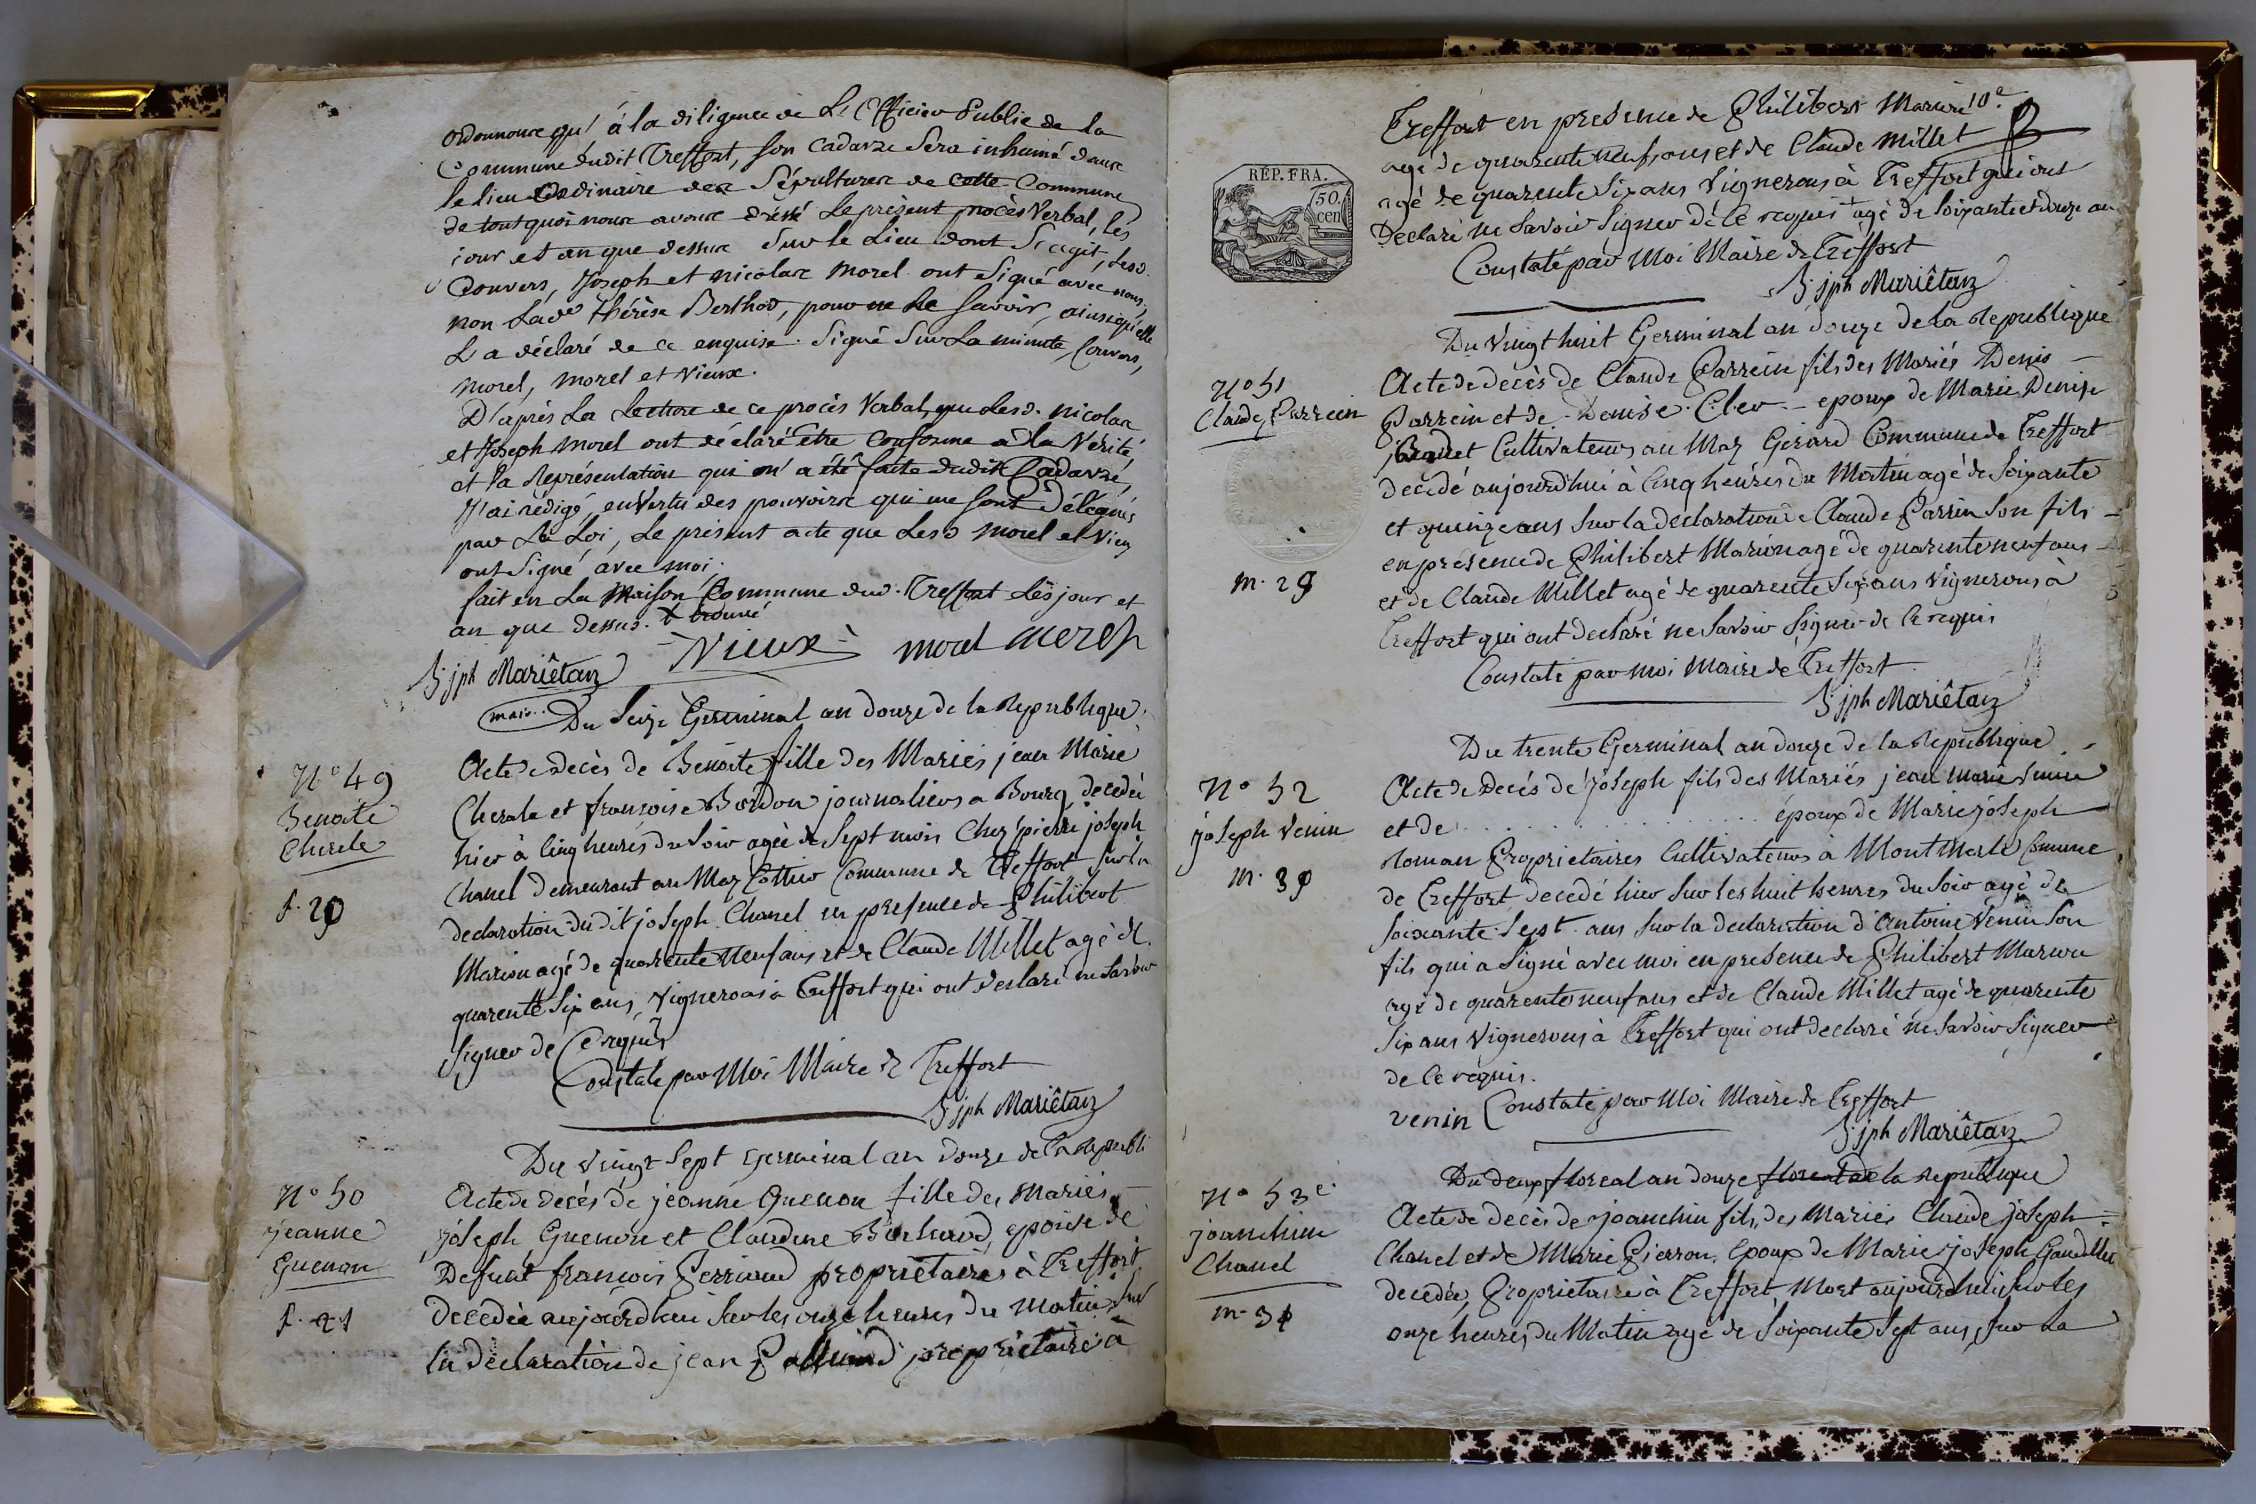 ordonnons qu' à la diligence de L'Officier Public de la
Commune dudit Treffort, son cadavre sera inhumé dans
le lieu ordinaire des Sépultures de cette Commune
de tout quoi nous avons dréssé le présent procès Verbal, les
jour et an que dessus Sur le Lieu dont S'agit, Lesd.
Convers, Joseph et nicolas morel ont Signé avec nous,
non Lad.e thérèse Berthod, pour ne le Savoir, ainsi qu'elle
L'a déclaré de ce enquise. Signé Sur La minute, Convers,
morel, morel et Vieux.
D'après La Lecture de ce procès Verbal, que Lesd. nicolas
et Joseph morel ont déclaré être conforme à la Verité
et la Représentation qui m'a été faite dudit Cadavre,
J'ai rédigé, en Vertu des pouvoirs qui me sont délégués
par La Loi, Le présent acte que Lesd morel et Vieux
ont Signé avec moi.
fait en La Maison Commune dud. Treffort Les jour et
an que dessus. + trouvé
Vieux morel merel
B. jph Mariêtan
maire
Du Seize Germinal an douze de la Republique.
N° 49
Benoite
Cherele
f. 20
Acte de decès de Benoite fille des Mariés jean Marie
Cherele et françoise Bordon journaliers a Bourg, decedée
hier à cinq heures du Soir agée de Sept mois Chez pierre joseph
Chanel demeurant au Maz Cottier Commune de Treffort Sur la
declaration dudit joseph Chanel en presence de Philibert
Marion agé de quarente neuf ans et de Claude Millet agé de
quarente Six ans, Vignerons à Treffort qui ont declaré ne Savoir
Signer de ce requis
Constaté par Moi Maire de Treffort
B. jph Mariêtan
Du Vingt Sept Germinal an douze de la Republi
N° 50
jeanne
Guenon
f. 21
Acte de decès de jeanne Guenon fille des Mariés
joseph Guenon et Claudine Bochard, epouse de
Defunt françois Perrioud proprietaires à Treffort
Decedée aujourdhui Sur les onze heures du Matin Sur
la declaration de jean proprietaire à
10e
Treffort en presence de Philibert Marion
agé de quarente neuf ans et de Claude Millet
agé de quarente Six ans Vignerons à Treffort qui ont
Declaré ne Savoir Signer de ce requis + agé de Soixante et douze an
Constaté par Moi Maire de Treffort
B. jph Mariêtan
RÉP. FRA.
50.
cen
Du Vingt huit Germinal an douze de la Republique
N° 51
Claude Parrein
m. 29
Acte de decès de Claude Parrein fils des Mariés Denis
Parrein et de Denise Cler epoux de Marie Denise
Cultivateurs au Maz Gerard Commune de Treffort
decedé aujourdhui à cinq heures du Matin agé de Soixante
et quinze ans Sur la declaration de Claude Parrin Son fils
en presence de Philibert Marion agé de quarente neuf ans
et de Claude Millet agé de quarente Six ans Vignerons à
Treffort qui ont declaré ne Savoir Signer de ce requis
Constaté par moi Maire de Treffort
B. jph Mariêtan
Du trente Germinal an douze de la Republique
N° 52
joseph Venin
m. 30
Acte de Decès de joseph fils des Mariés jean Marie Venin
et de . . . . . . . . . . époux de Marie joseph
Roman Proprietaires Cultivateurs a Montmerle Comune
de Treffort decedé hier Sur les huit heures du Soir agé de
Soixante Sept ans Sur la declaration d'Antoine Venin Son
fils qui a Signé avec moi en presence de Philibert Marion
agé de quarente neuf ans et de Claude Millet agé de quarente
Six ans Vignerons à Treffort qui ont declaré ne Savoir Signer
de ce requis.
venin Constaté par Moi Maire de Treffort
B. jph Mariêtan
Du deux floreal an douze floreal de la Republique
N° 53e
joanchin
Chanel
m. 31
Acte de decès de joanchin fils des Mariés Claude joseph
Chanel et de Marie Pierron, Epoux de Marie joseph
decedée, Proprietaire à Treffort, Mort aujourdhui Sur les
onze heures du Matin agé de Soixante Sept ans, Sur La